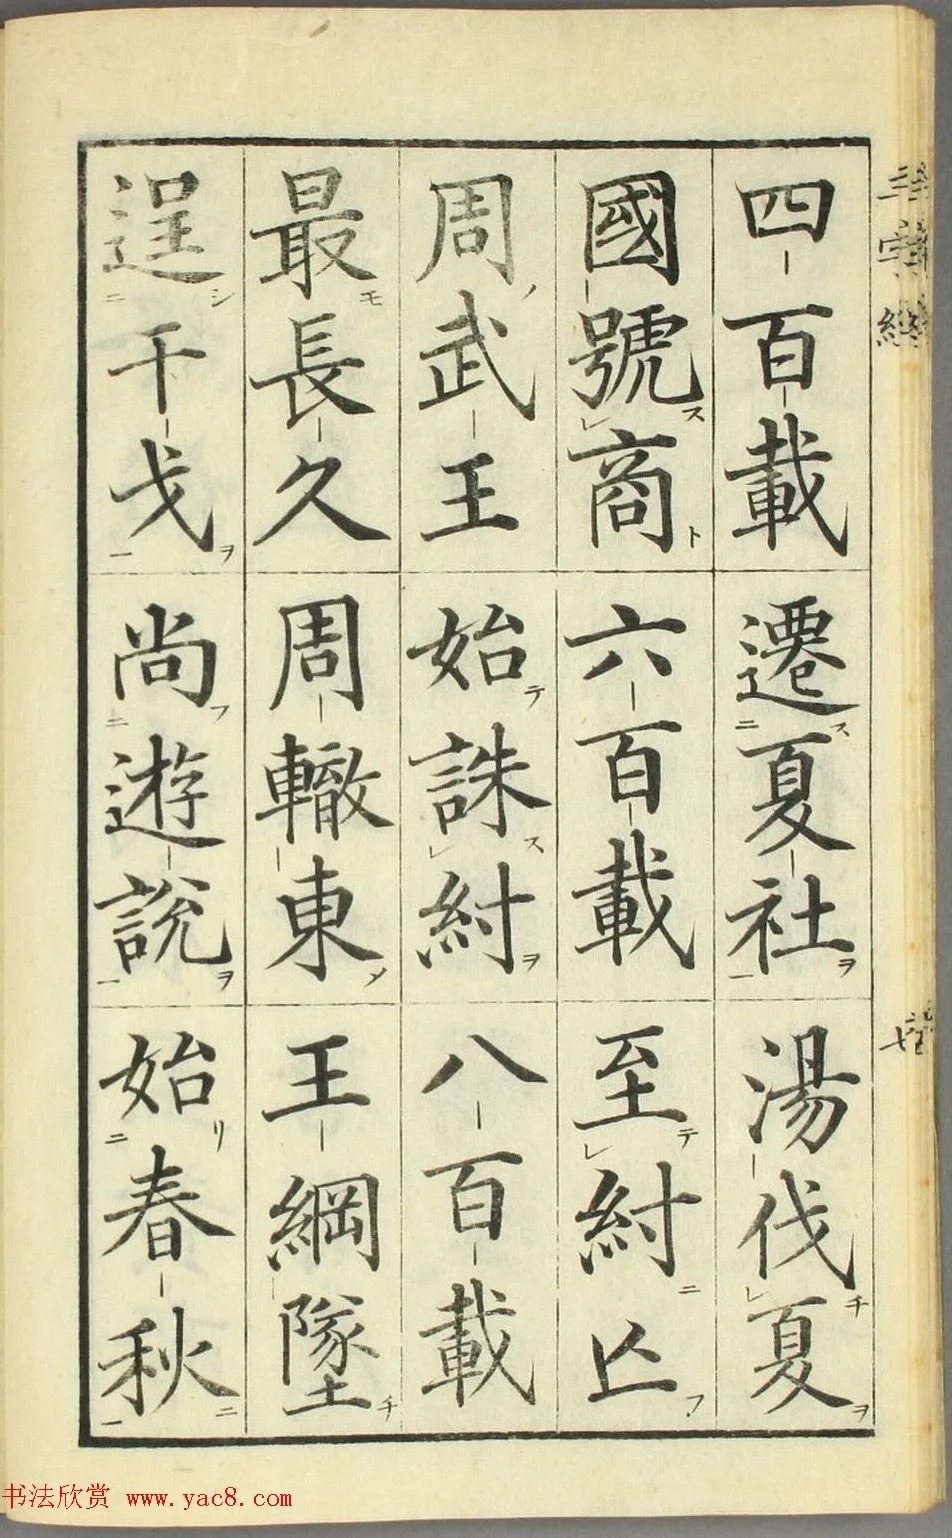 四百載遷夏社湯伐夏
國號商六百載至紂亾
周武王始誅紂八百載
最長久周轍東王綱墜
逞干戈尚遊說始春秋
三字經
七
书法欣赏 www.yac8.com